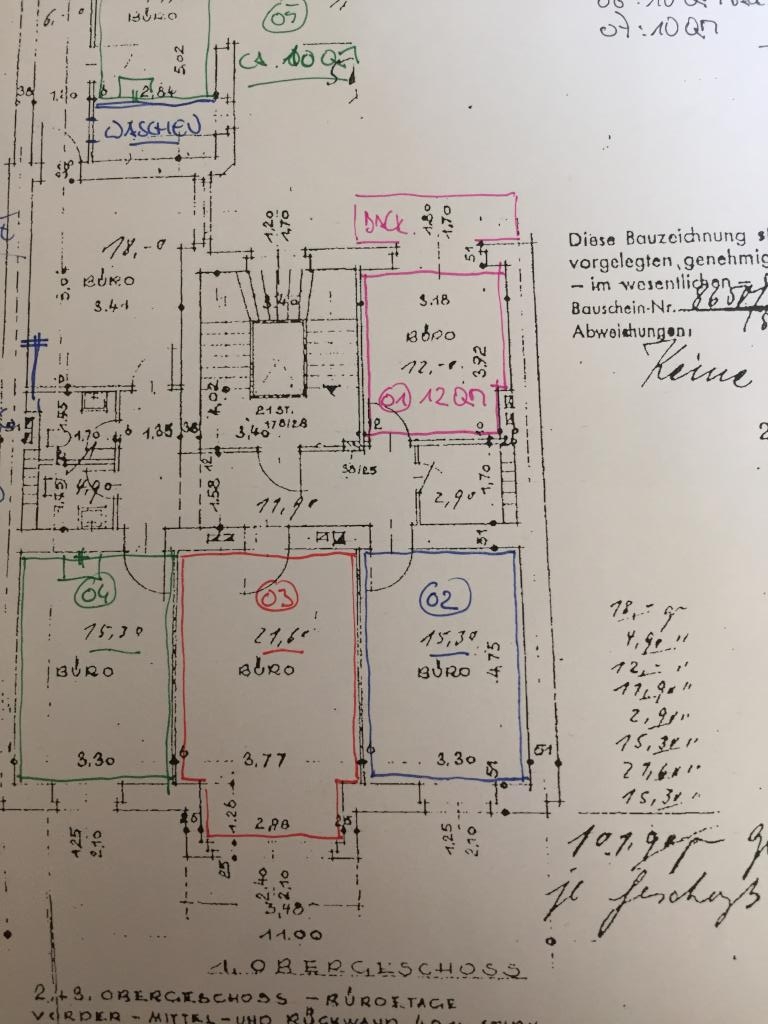 BÜRO
05
07: 10 QM
5,02
CA. 10 QM
2,84
WASCHEN
BACK.
1,20
1,70
1,80
1,70
51
Diese Bauzeichnung
vorgelegten, genehmig
– im wesentlichen –
Bauschein-Nr.
Abweichungen:
Keine
18,-
BÜRO
3.41
3.40
3.18
BÜRO
12,-
3.92
01 12 QM
4,02
21 ST.
178/28
3,40
1.70
1,35
38
38/25
4,90
1.58
11,90
2,90
1,70
51
04
03
02
15,30
21,60
15,30
BÜRO
BÜRO
BÜRO
4.75
3.30
3,77
3.30
51
51
1.26
2,98
25
1,25
2,10
2,40
2,10
3,48
1,25
2,10
11.00
18,-
4,90 "
12,- "
11,90 "
2,90 "
15,30 "
21,60 "
15,30 "
101,90
je Geschoß
1. OBERGESCHOSS
2.+3. OBERGESCHOSS – BÜROETAGE
VORDER – MITTEL – UND RÜCKWAND